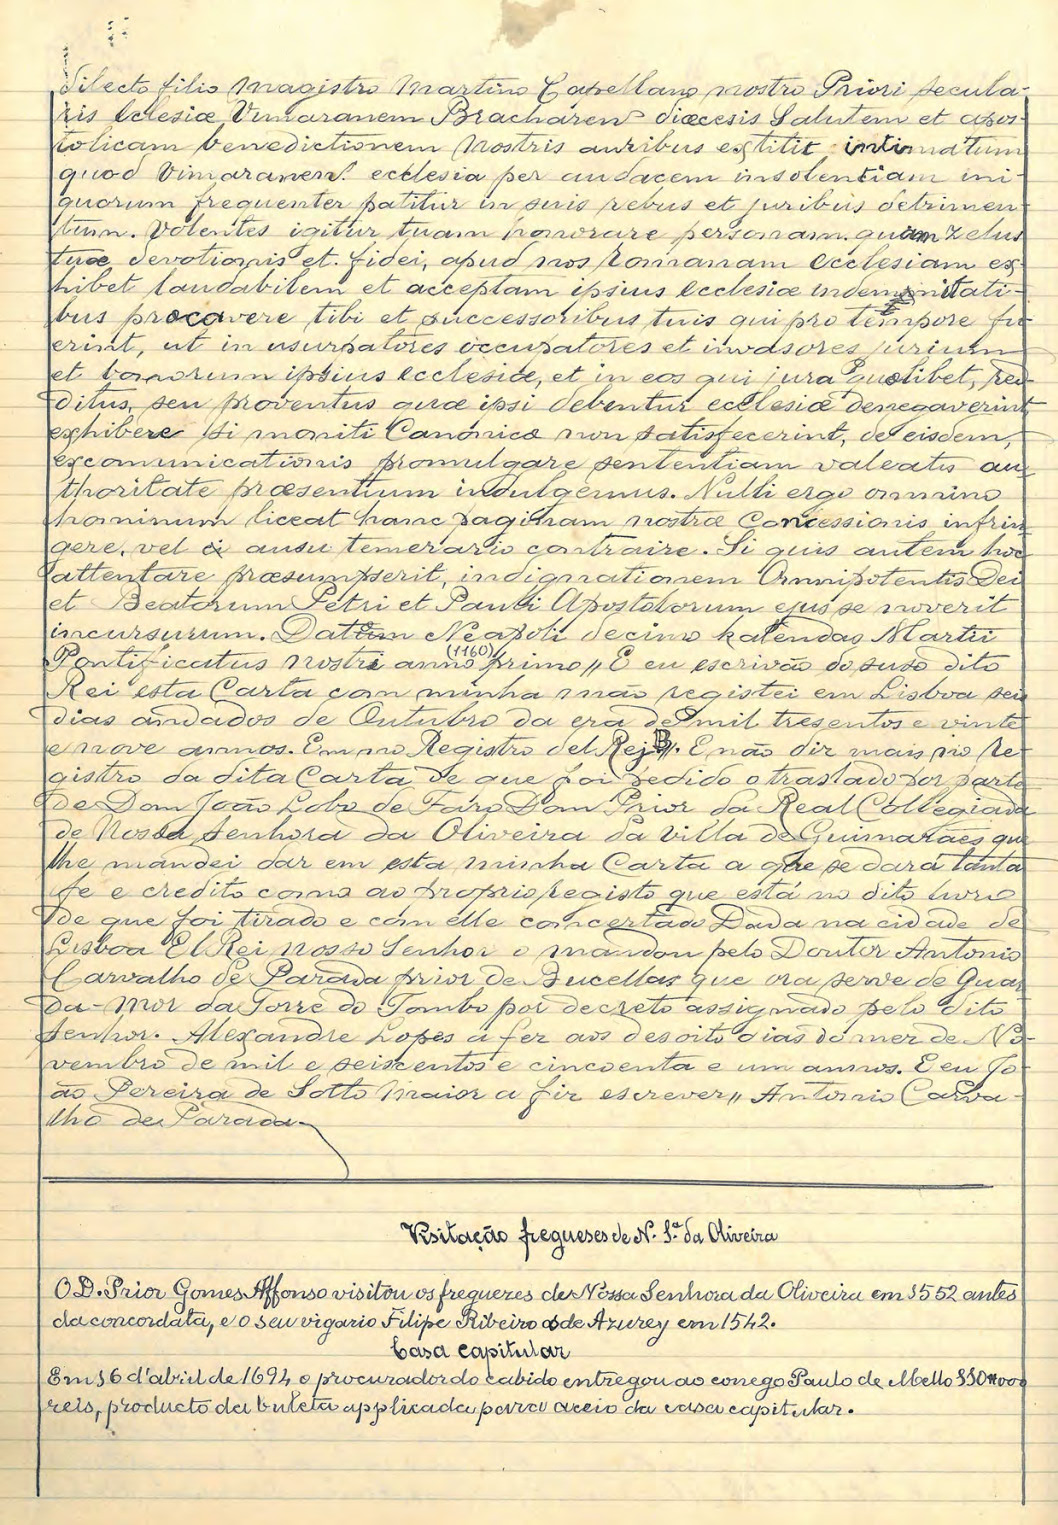 dilecto filio Magistro Martino Capellano nostro Priori secula-
ris Eclesiæ Vimaranem Bracharen diœcesis Salutem et apos-
tolicam benedictionem Nostris auribus extitit intimatum
quod Vimaranen. ecclesia per audacem insolentiam ini-
quorum frequenter patitur in suis rebus et juribus detrimen-
tum. Volentes igitur tuam honorare personam quam zelus
tuæ devotionis et fidei, apud nos Romanam Ecclesiam ex-
hibet laudabilem et acceptam ipsius Ecclesiæ indemnitati-
bus procavere tibi et successoribus tuis qui pro tempore fu-
erint, ut in usurpatores occupatores et invasores jurium
et bonorum ipsius Ecclesiæ, et in eos qui jura quœlibet, red-
ditus, seu proventus quæ ipsi debentur ecclesiæ denegaverint
exhibere si moniti Canonicæ non satisfecerint, de eisdem,
excomunicationis promulgare sententiam valeatis au-
thoritate præsentium indulgemus. Nulli ergo omnino
hominum liceat hanc paginam nostræ Concessionis infrin-
gere, vel ei ausu temerario contraire. Si quis autem hoc
attentare præsumpserit, indignationem Omnipotentis Dei
et Beatorum Petri et Pauli Apostolorum ejus se noverit
incursurum. Datum Neapoli decimo kalendas Martii
Pontificatus Nostri anno (1160) primo,, E eu escrivão do suso dito
Rei esta Carta com minha mão registei em Lisboa seis
dias andados de Outubro da era de mil tresentos e vinte
e nove annos. Em no Registro del Rej B,,. E não diz mais no Re-
gistro da dita Carta de que foi pedido o traslado por parte
de Dom João Lobo de Faro Dom Prior da Real Collegiada
de Nossa Senhora da Oliveira da Villa de Guimarães que
lhe mandei dar em esta minha Carta a que se dará tanta
fe e credito como ao proprio registo que está no dito livro
de que foi tirado e com elle concertado Dada na cidade de
Lisboa El Rei Nosso Senhor o mandou pelo Doutor Antonio
Carvalho de Parada prior de Bucellas que ora serve de Guar-
da-Mor da Torre do Tombo por decreto assignado pelo dito
Senhor. Alexandre Lopes a fez aos desoito dias do mez de No-
vembro de mil e seiscentos e cincoenta e um annos. E eu Jo-
ão Pereira de Sotto Maior a fiz escrever,, Antonio Carva-
lho de Parada.
Visitação freguezes de N. Sª da Oliveira
O D. Prior Gomes Affonso visitou os freguezes de Nossa Senhora da Oliveira em 1552 antes
da concordata, e o seu vigario Filipe Ribeiro os de Azurey em 1542.
Casa capitular
Em 16 d'abril de 1694 o procurador do cabido entregou ao conego Paulo de Mello
reis, producto da buleta applicada para aceio da casa capitular.